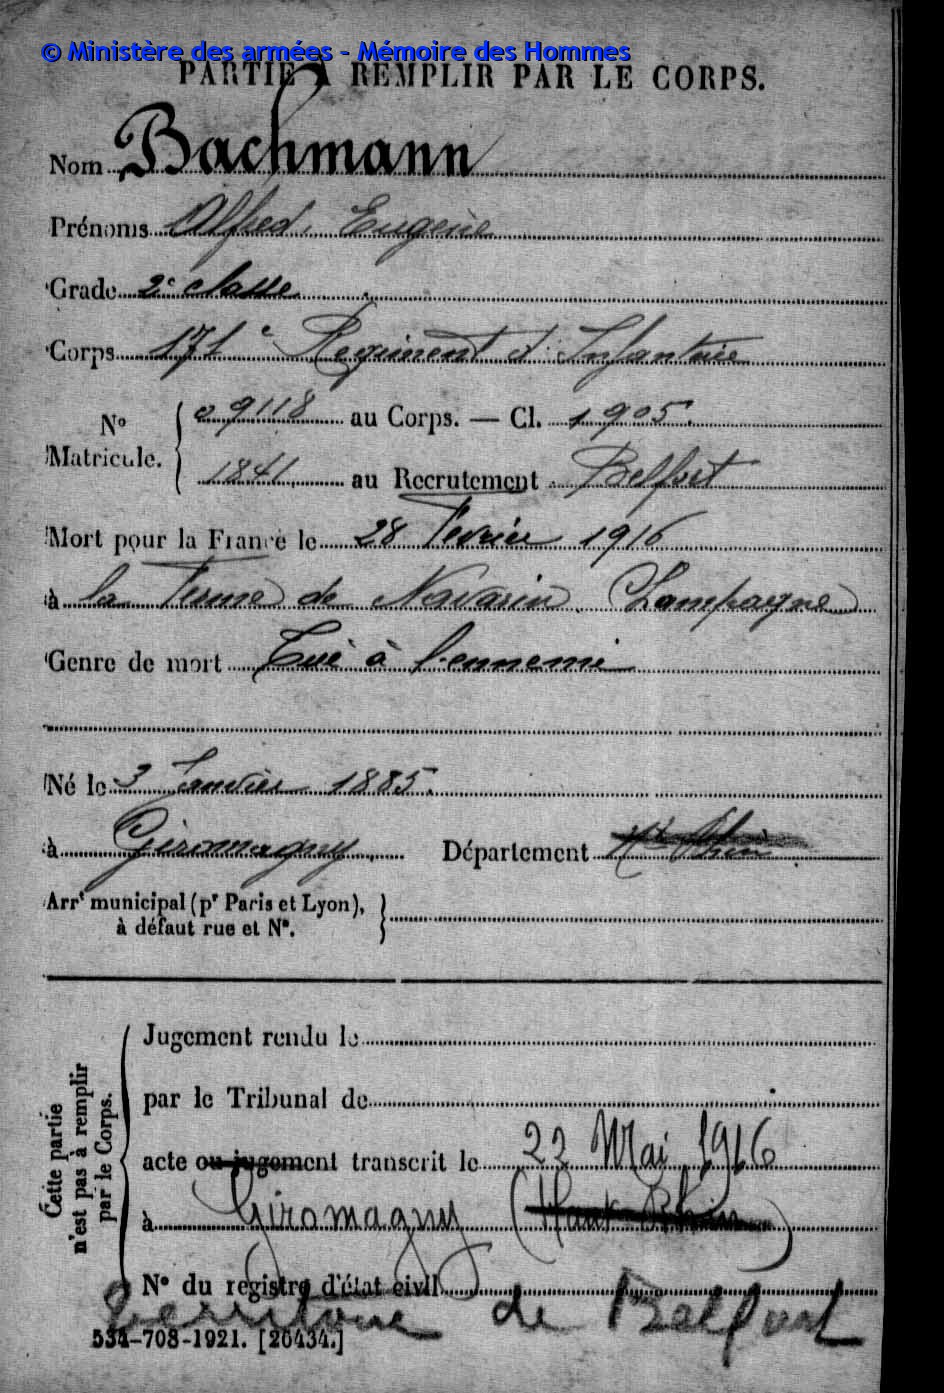 © Ministère des armées - Mémoire des Hommes
PARTIE À REMPLIR PAR LE CORPS.
Nom Bachmann
Prénoms Alfred, Eugène
Grade 2e classe
Corps 171e Régiment d'Infanterie
No Matricule. 09118 au Corps. — Cl. 1905.
1841 au Recrutement Belfort
Mort pour la France le 28 Février 1916
à la Ferme de Navarin (Champagne)
Genre de mort Tué à l'ennemi
Né le 3 Janvier 1885.
à Giromagny. Département Ht Rhin
Arrt municipal (pr Paris et Lyon),
à défaut rue et No.
Cette partie
n'est pas à remplir
par le Corps.
Jugement rendu le
par le Tribunal de
acte ou jugement transcrit le 22 Mai 1916
à Giromagny (Haut Rhin)
No du registre d'état civil
Territoire de Belfort
534-708-1921. [26434.]